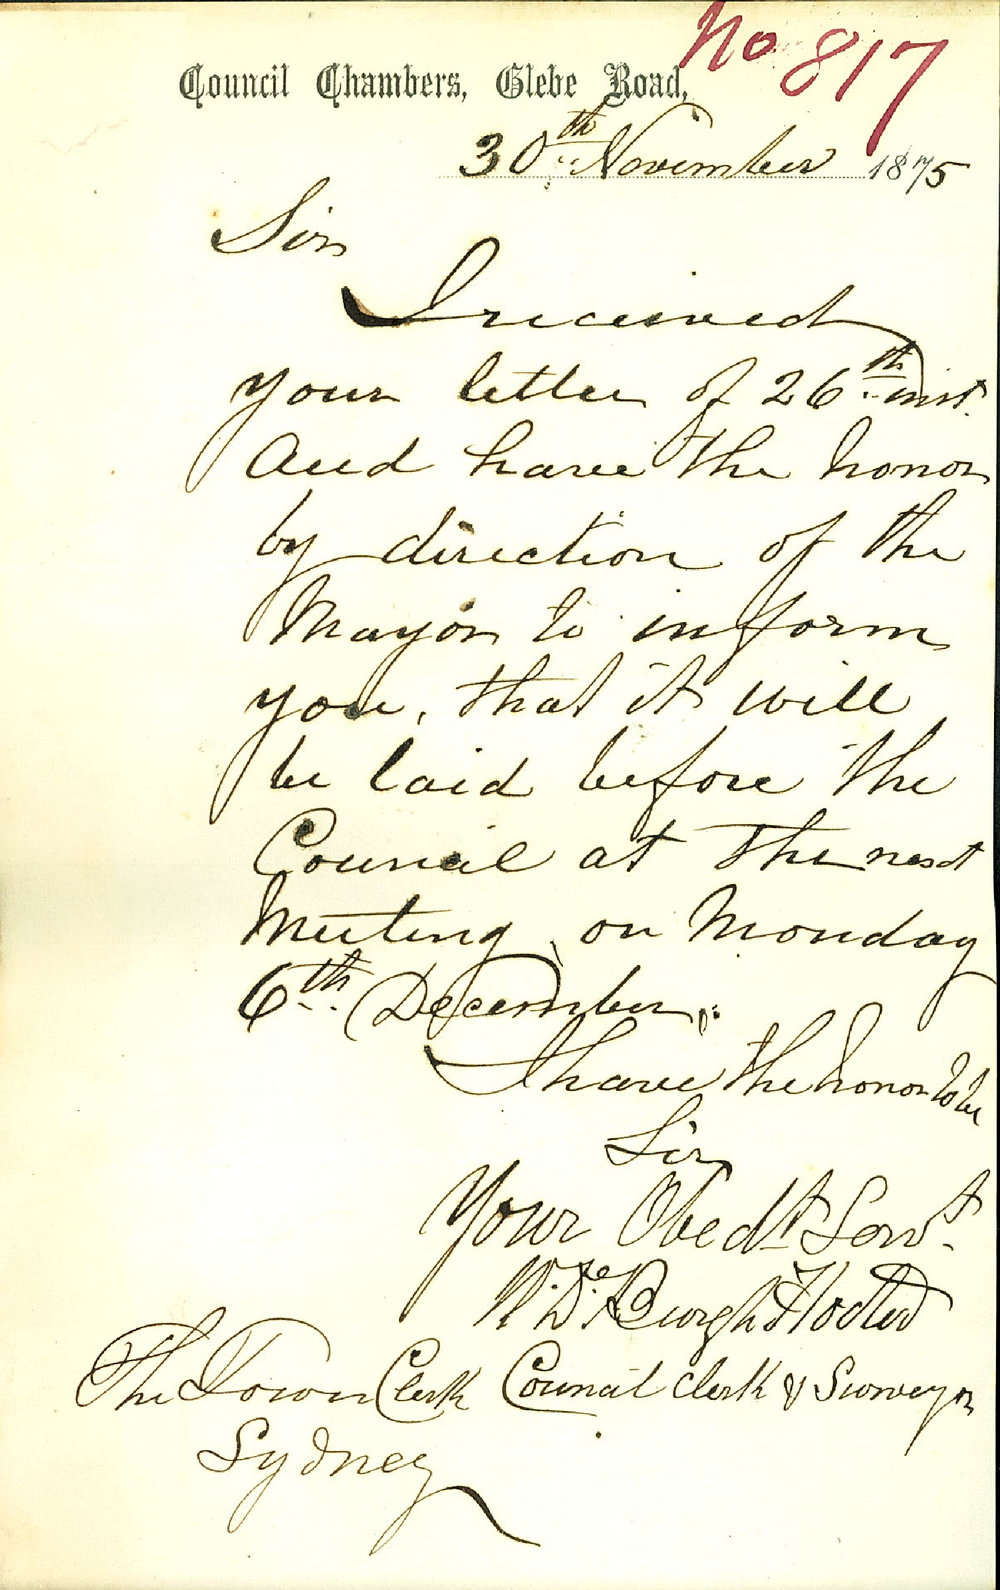 No 817
Council Chambers, Glebe Road,
30th November 1875
Sir
I received
your letter of 26th inst.
And have the honor
by direction of the
Mayor to inform
you, that it will
be laid before the
Council at the next
Meeting, on Monday
6th December.
I have the honor to be
Sir
Your Obedt Servt.
De Burgh
The Town Clerk Council Clerk & Surveyor
Sydney